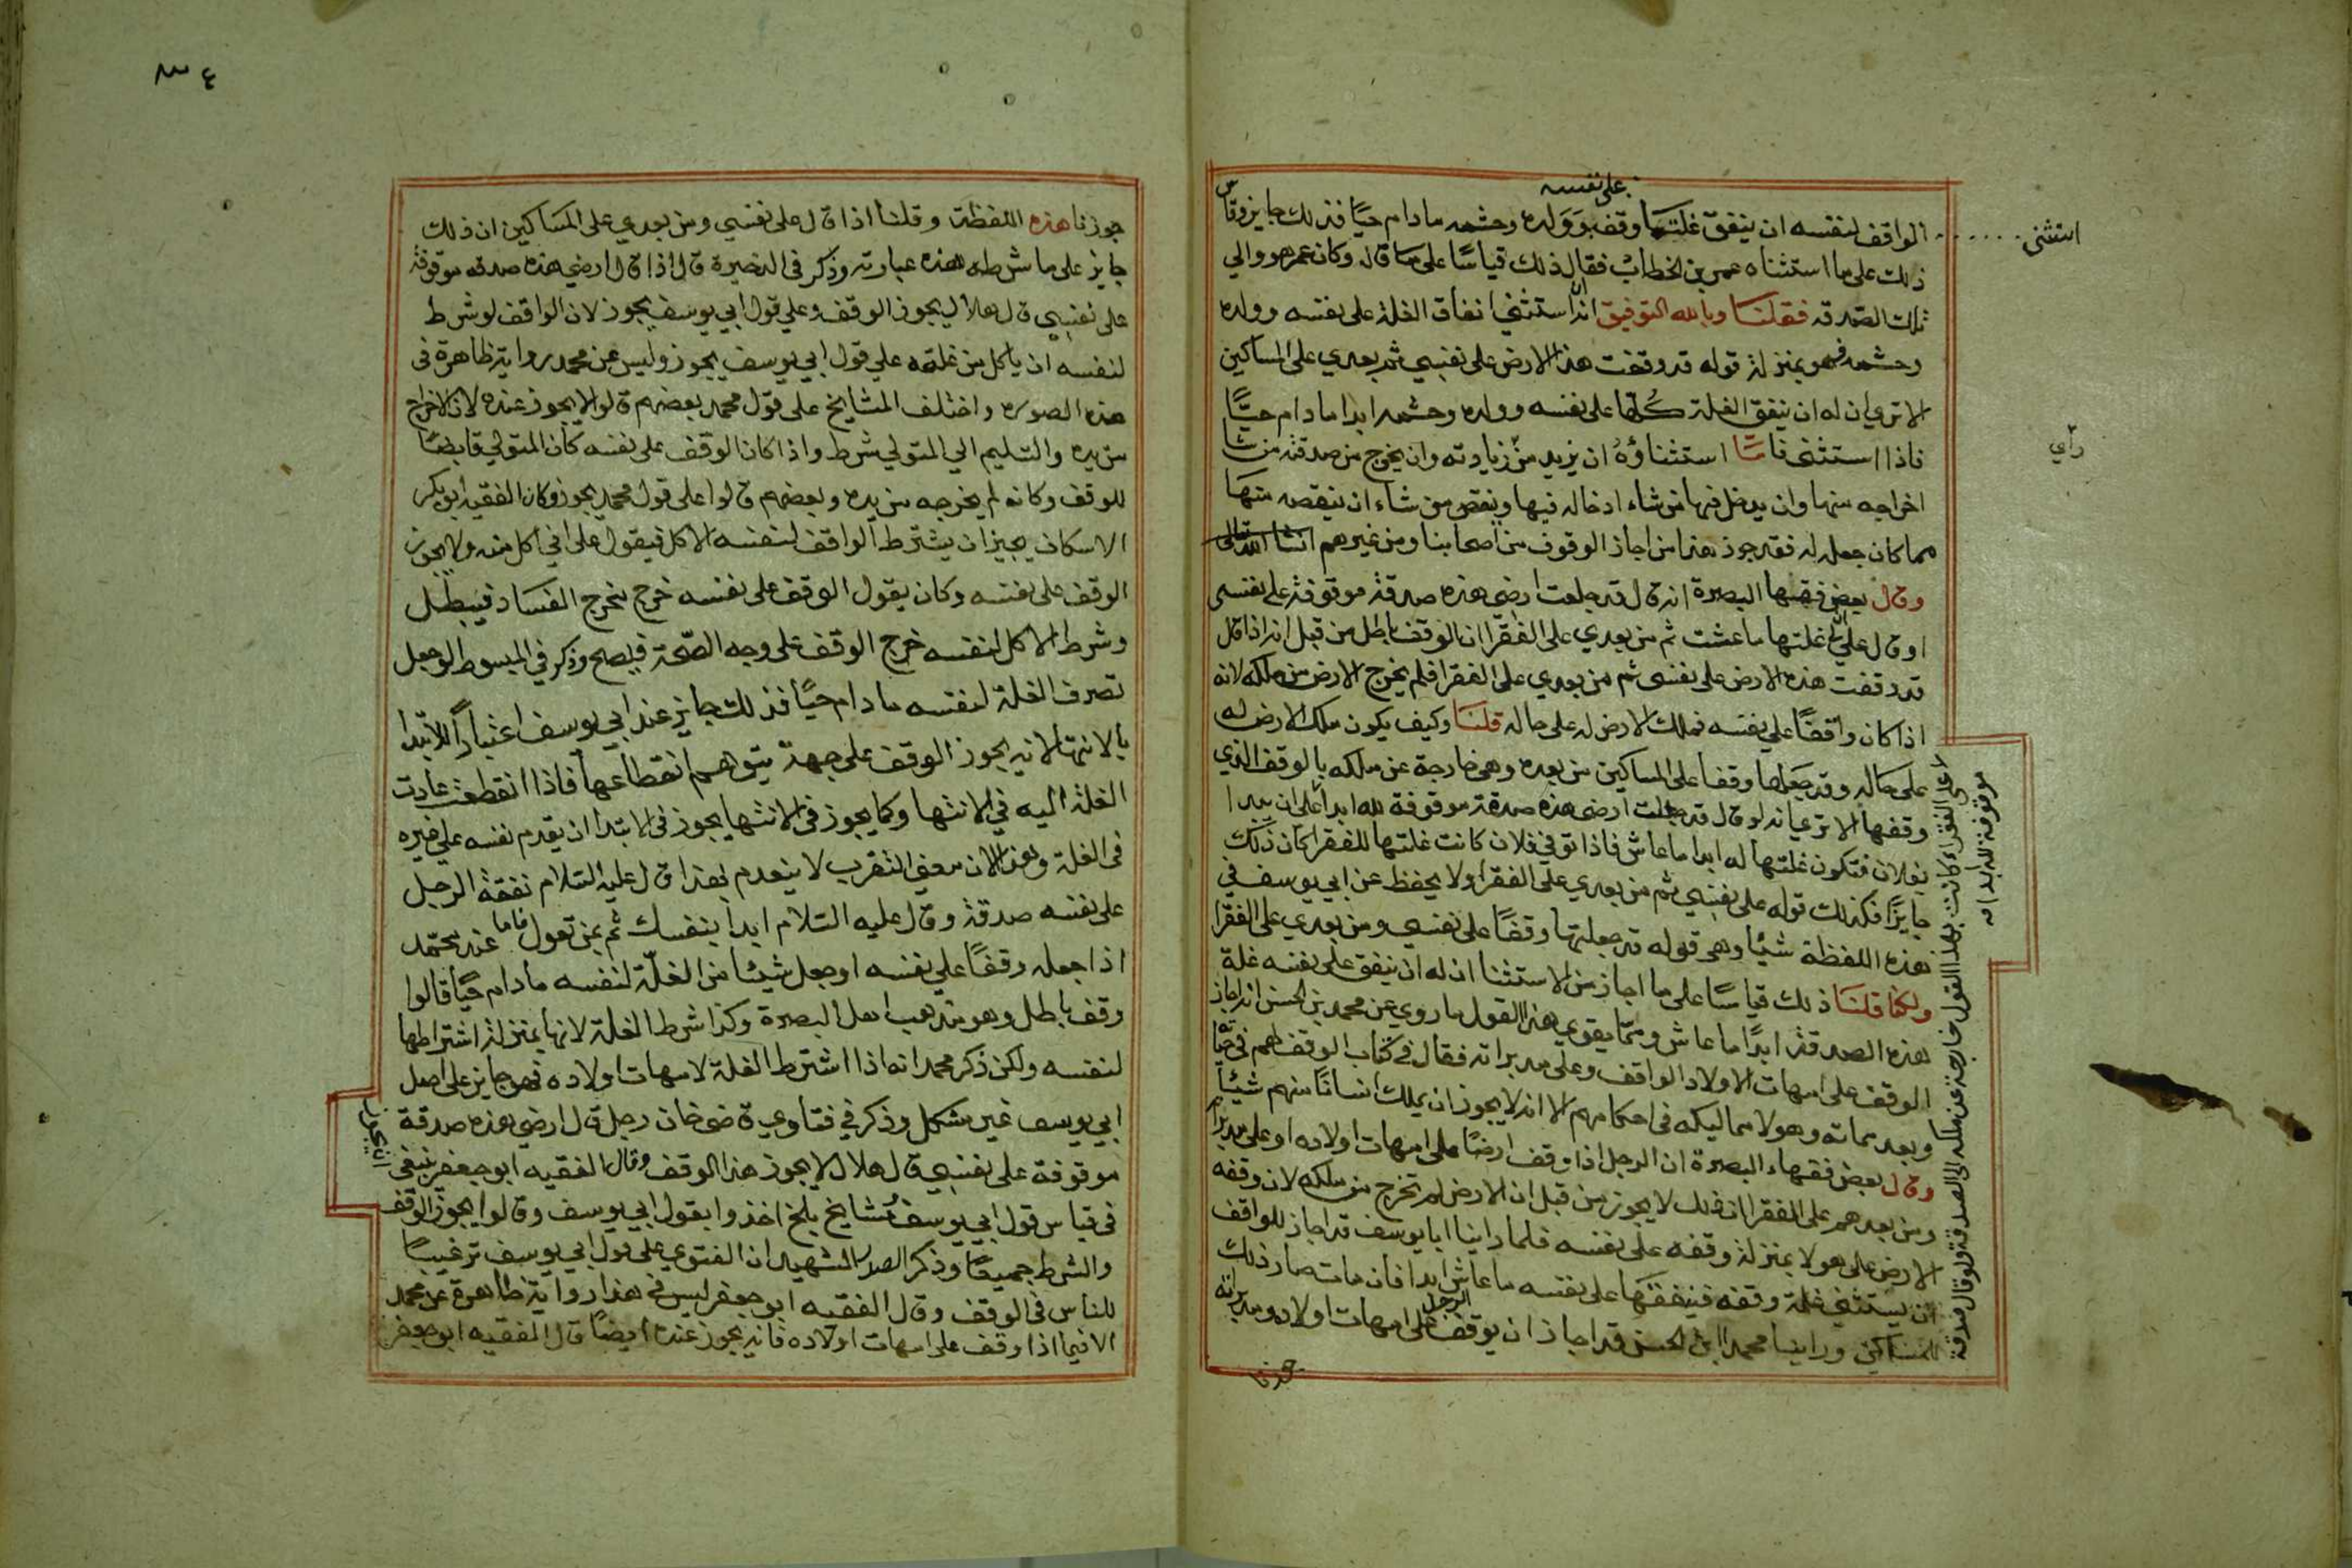 على نفسه
الواقف لنفسه ان ينفق غلتها وقف وولده وحشمه ما دام حيًا فذلك جايز وقاس
استثنى
ذلك على ما استثناه عمر بن الخطاب فقال ذلك قياسًا على ما قال وكان عمر هو والي
تلك الصدقة فقلنا وبالله التوفيق انه استثنى انفاق الغلة على نفسه وولده
وحشمه فهو بمنزلة قوله قد وقفت هذه الارض على نفسي ثم بعدي على المساكين
الا تري ان له ان ينفق الغلة كلها على نفسه وولده وحشمه ابدا ما دام حيًّا
راي
فاذا استثنى فاما استثناؤه ان يزيد من زيادته وان يخرج من صدقته من شا
اخراجه منها وان يدخل فيها من شاء ادخاله فيها وينقص من شاء ان ينقصه منها
مما كان جعله له فقد جوز هذا من اجاز الوقوف من اصحابنا ومن غيرهم ان شا الله تعالى
وقال بعض فقهها البصرة انه قال قد جعلت ارضي هذه صدقة موقوفة على نفسي
او قال علي غلتها ما عشت ثم من بعدي على الفقرا ان الوقف باطل من قبل انه اذا قال
قد وقفت هذه الارض على نفسي ثم من بعدي على الفقرا فلم يخرج الارض من ملكه لانه
اذا كان واقفًا علي نفسه فملك الارض له على حاله قلنا وكيف يكون ملك الارض له
على حاله وقد جعلها وقفا على المساكين من بعده وهي خارجة عن ملكه بالوقف الذي
وقفها الا تري انه لو قال قد جعلت ارضي هذه صدقة موقوفة لله ابدا على ان يبدا
بفلان فتكون غلتها له ابدا ما عاش فاذا توفي فلان كانت غلتها للفقرا كان ذلك
جايزًا فكذلك قوله على نفسي ثم من بعدي على الفقرا ولا يحفظ عن ابي يوسف في
هذه اللفظة شيًا وهي قوله قد جعلتها وقفًا على نفسي ومن بعدي على الفقرا
ولكنا قلنا ذلك قياسًا على ما اجاز من الاستثنا ان له ان ينفق على نفسه غلة
هذه الصدقة ابدًا ما عاش ومما يقوي هذا القول ما روي عن محمد بن الحسن انه اجاز
الوقف على امهات الاولاد الواقف وعلى مدبراته فقال في كتاب الوقف لهم في حيا
وبعد مماته وهولا مماليكه في احكامهم الا انه لا يجوز ان يملك انسانًا منهم شيئًا
وقال بعض فقهاء البصرة ان الرجل اذا وقف ارضًا على امهات اولاده او على مدبراته
ومن بعدهم على الفقرا ان ذلك لا يجوز من قبل ان الارض لم تخرج من ملكه لان وقفه
الارض على هولا بمنزلة وقفه على نفسه فلما راينا ابا يوسف قد اجاز للواقف
ان يستثني غلة وقفه فينفقها على نفسه ما عاش ابدا فان مات صار ذلك
للمساكين وراينا محمد ابن الحسن قد اجاز ان يوقف الرجل على امهات اولاده ومدبراته
جوزنا
موقوفة لله ابدا
على الفقراء كانت بهذا القول خارجة عن ملكه الى الصدقة ولو قال صدقة
٣٤
جوزنا هذه اللفظة وقلنا اذا قال على نفسي ومن بعدي على المساكين ان ذلك
جايز على ما شرطه هذه عبارته وذكر في الذخيرة قال اذا قال ارضي هذه صدقه موقوفة
على نفسي قال هلال لا يجوز الوقف وعلي قول ابي يوسف يجوز لان الواقف لو شرط
لنفسه ان ياكل من غلته علي قول ابي يوسف يجوز وليس عن محمد رواية ظاهرة في
هذه الصوره واختلف المشايخ على قول محمد بعضهم قالوا لا يجوز عنده لان الاخراج
من يده والتسليم الي المتولي شرط واذا كان الوقف على نفسه كان المتولي قابضًا
للوقف وكانه لم يخرجه من يده وبعضهم قالوا على قول محمد يجوز وكان الفقيه ابو بكر
الاسكاف يجيز ان يشترط الواقف لنفسه الاكل فيقول على اني اكل منه ولا يجوز
الوقف على نفسه وكان يقول الوقف على نفسه خرج مخرج الفساد فيبطل
وشرط الاكل لنفسه خرج الوقف على وجه الصحة فيصح وذكر في المبسوط لو جعل
تصرف الغلة لنفسه ما دام حيًا فذلك جايز عند ابي يوسف اعتبارًا للابتدا
بالانتها لانه يجوز الوقف على جهة يتوهم انقطاعها فاذا انقطعت عادت
الغلة اليه في الانتها وكما يجوز في الانتها يجوز في الابتدا ان يقدم نفسه علي غيره
في الغلة وهذا لان معني التقرب لا ينعدم بهذا قال عليه السلام نفقة الرجل
على نفسه صدقة وقال عليه السلام ابدا بنفسك ثم بمن تعول فاما عند محمد
اذا جعله وقفًا علي نفسه او جعل شيئًا من الغلّة لنفسه ما دام حيًا قالوا
وقف باطل وهو مذهب اهل البصرة وكذا شرط الغلة لانها بمنزلة اشتراطها
لنفسه ولكن ذكر محمد انه اذا اشترط الغلة لامهات اولاده فهو جايز على اصل
ابي يوسف غير مشكل وذكر في فتاوي قاضي خان رجل قال ارضي هذه صدقة
موقوفة على نفسي قال هلال لا يجوز هذا الوقف وقال الفقيه ابو جعفر ينبغي
ان يجوز
في قياس قول ابي يوسف مشايخ بلخ اخذوا بقول ابي يوسف وقالوا يجوز الوقف
والشرط جميعًا وذكر الصدر الشهيد ان الفتوي على قول ابي يوسف ترغيبًا
للناس في الوقف وقال الفقيه ابو جعفر ليس في هذا رواية ظاهرة عن محمد
الا فيما اذا وقف على امهات اولاده فانه يجوز عنده ايضًا قال الفقيه ابو جعفر